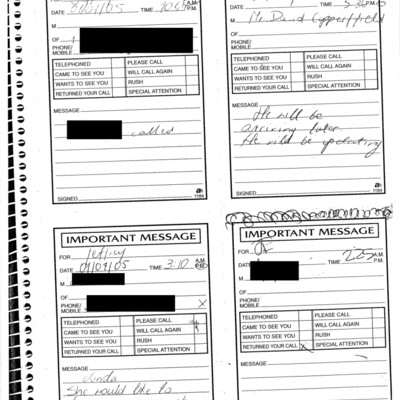 DATE 01/01/05 TIME 10:45 A.M. P.M.
M
OF
PHONE/
MOBILE
TELEPHONED PLEASE CALL
CAME TO SEE YOU WILL CALL AGAIN
WANTS TO SEE YOU RUSH
RETURNED YOUR CALL SPECIAL ATTENTION
MESSAGE
called
SIGNED
1184
TIME
M Mr. David Copperfield
OF
PHONE/
MOBILE
TELEPHONED PLEASE CALL
CAME TO SEE YOU WILL CALL AGAIN
WANTS TO SEE YOU RUSH
RETURNED YOUR CALL SPECIAL ATTENTION
MESSAGE
He will be
arriving later.
He will be
SIGNED
1184
IMPORTANT MESSAGE
FOR Jeffrey
DATE TIME 3:10 A.M. P.M.
M
OF
PHONE/
MOBILE
TELEPHONED PLEASE CALL
CAME TO SEE YOU WILL CALL AGAIN
WANTS TO SEE YOU RUSH
RETURNED YOUR CALL SPECIAL ATTENTION
MESSAGE
She would like to
IMPORTANT MESSAGE
FOR JE
DATE TIME 2:25 A.M. P.M.
M
OF
PHONE/
MOBILE
TELEPHONED PLEASE CALL
CAME TO SEE YOU WILL CALL AGAIN
WANTS TO SEE YOU RUSH
RETURNED YOUR CALL X SPECIAL ATTENTION
MESSAGE